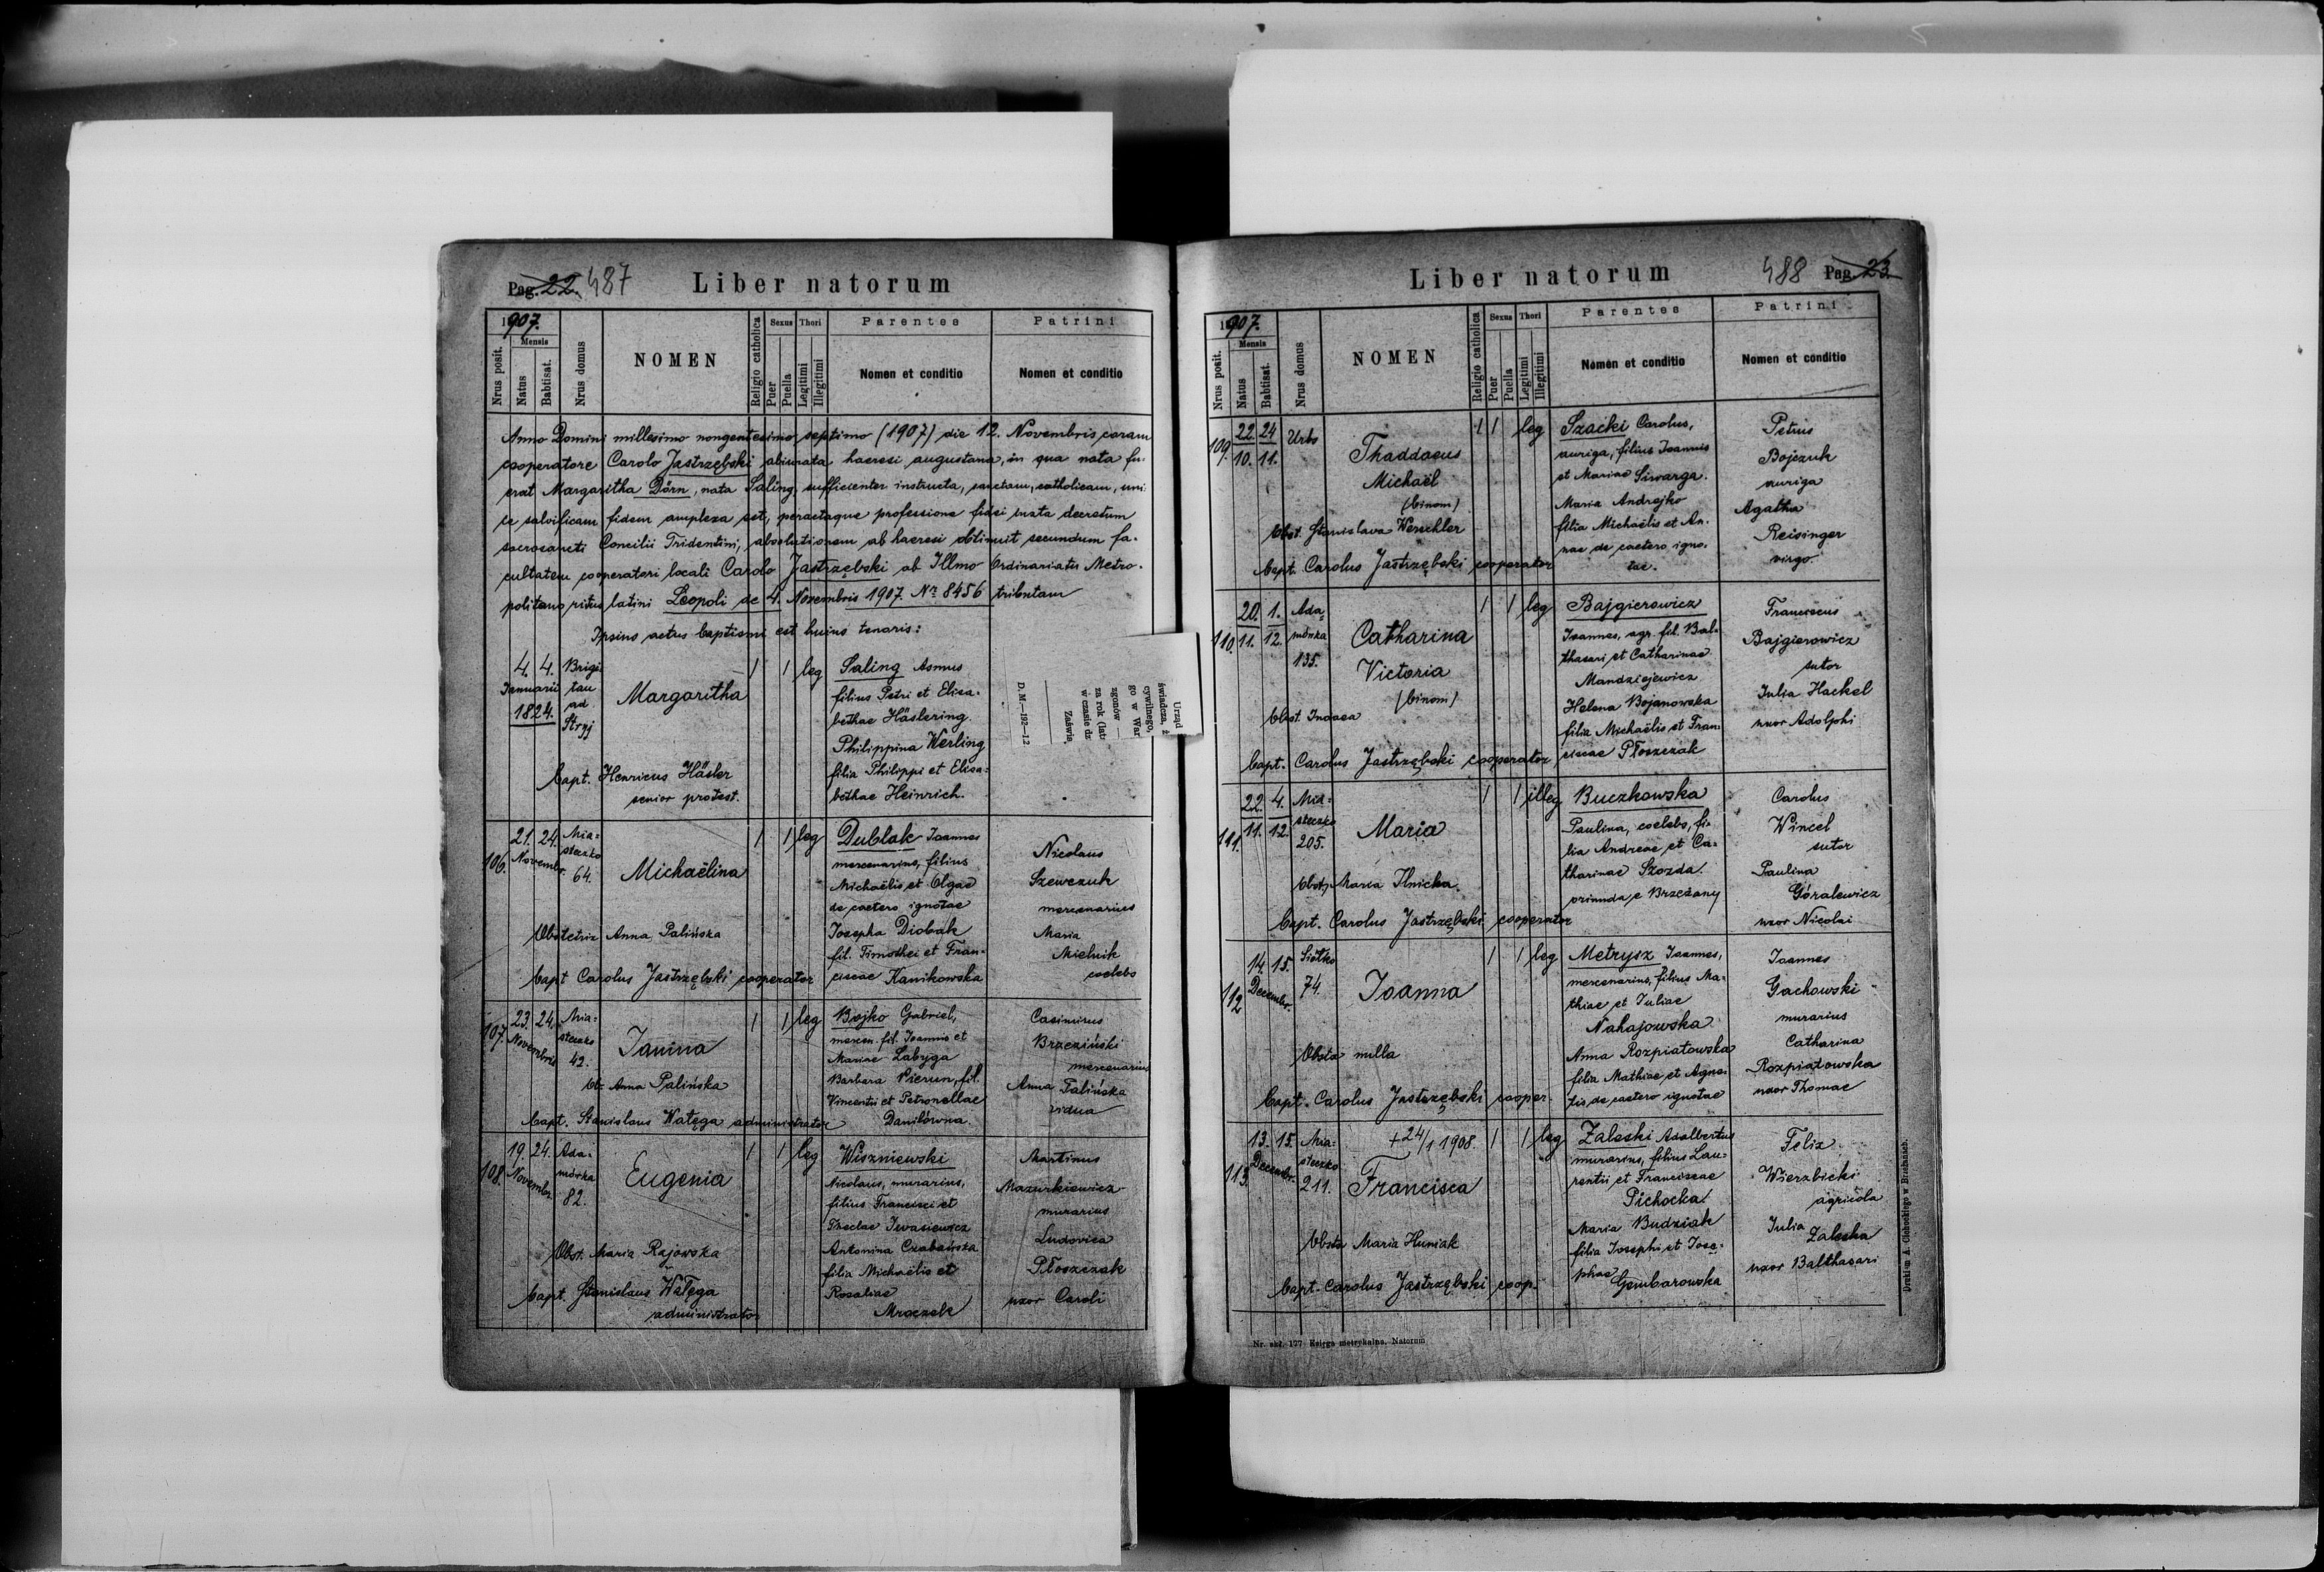 Pag. 22. 487 Liber natorum
1907.
Nrus posit.
Mensis
Natus
Babtisat.
Nrus domus
NOMEN
Religio catholica
Sexus
Puer
Puella
Thori
Legitimi
Illegitimi
Parentes
Nomen et conditio
Patrini
Nomen et conditio
Anno Domini millesimo nongentesimo septimo (1907) die 12. Novembris coram
cooperatore Carolo Jastrzębski abiurata haeresi augustana, in qua nata fu-
erat Margaritha Dörn, nata Saling, sufficienter instructa, sanctam, catholicam, uni-
ce salvificam fidem amplexa est, peractaque professione fidei iuxta decretum
sacrosancti Concilii Tridentini, absolutionem ab haeresi obtinuit secundum fa-
cultatem cooperatori locali Carolo Jastrzębski ab Illmo Ordinariatu Metro-
politano ritus latini Leopoli de 4. Novembris 1907. Nr 8456 tributam
Ipsius actus baptismi est huius tenoris:
4. 4.
Januarii
1824.
Brigi
tau
ad
Stryj
Margaritha
1 1 leg
Saling Asmus
filius Petri et Elisa-
bethae Häslering.
Philippina Werling
filia Philippi et Elisa-
bethae Heinrich.
bapt. Henricus Häsler
senior protest.
Urząd
świadcza, ż
cywilnego,
go w War
zgonów
za rok (lat
w czasie dz
Zaświa
D. M.—192—1.2
106.
21. 24.
Novembr.
Mia-
steczko
64.
Michaëlina
1 1 leg
Dublak Joannes
mercenarius, filius
Michaëlis et Olgae
de caetero ignotae
Josepha Diobak
fil. Timothei et Fran-
ciscae Kanikowska
Nicolaus
Szewczuk
mercenarius
Maria
Mielnik
coelebs
Obstetrix Anna Palińska
bapt Carolus Jastrzębski cooperator
107.
23. 24.
Novembris
Mia-
steczko
42.
Janina
1 1 leg
Bojko Gabriel,
mercen. fil. Joannis et
Mariae Labyga
Barbara Pierun, fil.
Vincentii et Petronellae
Daniłówna
Casimirus
Brzeziński
mercenarius
Anna Palińska
vidua
Ob. Anna Palińska
bapt. Stanislaus Wałęga administrator
108.
19. 24.
Novembr.
Ada-
mówka
82.
Eugenia
1 1 leg
Wiszniewski
Nicolaus, murarius,
filius Francisci et
Theclae Iwasiewicz
Antonina Czabańska
filia Michaëlis et
Rosaliae
Mroczek
Martinus
Mazurkiewicz
murarius
Ludovica
Płoszczak
uxor Caroli
Obst. Maria Rajowska
bapt. Stanislaus Wałęga
administrator
Liber natorum 488 Pag. 23.
1907.
Nrus posit.
Mensis
Natus
Babtisat.
Nrus domus
NOMEN
Religio catholica
Sexus
Puer
Puella
Thori
Legitimi
Illegitimi
Parentes
Nomen et conditio
Patrini
Nomen et conditio
109.
22. 24
10. 11.
Urbs
Thaddaeus
Michaël
(binom)
1 1 leg
Szacki Carolus,
auriga, filius Joannis
et Mariae Siwarga.
Maria Andrejko
filia Michaëlis et An-
nae de caetero igno-
tae.
Petrus
Bojczuk
auriga
Agatha
Reisinger
virgo.
Obst. Stanislava Werschler
bapt. Carolus Jastrzębski cooperator
110.
20. 1.
11. 12.
Ada-
mówka
135.
Catharina
Victoria
(binom)
1 1 leg
Bajgierowicz
Joannes, agr. fil. Bal-
thasari et Catharinae
Mandziejewicz
Helena Bojanowska
filia Michaëlis et Fran-
ciscae Płoszczak
Franciscus
Bajgierowicz
sutor
Julia Hackel
uxor Adolphi
Obst. Judaea
bapt. Carolus Jastrzębski cooperator
111.
22. 4.
11. 12.
Mia-
steczko
205.
Maria
1 1 illeg
Buczkowska
Paulina, coelebs, fi-
lia Andreae et Ca-
tharinae Szozda.
oriunda e Brzeżany
Carolus
Wincel
sutor
Paulina
Góralewicz
uxor Nicolai
Obst. Maria Ilnicka.
bapt. Carolus Jastrzębski cooperator
112
14. 15.
Decembr.
Siółko
74.
Joanna
1 1 leg
Metrysz Joannes,
mercenarius, filius Ma-
thiae et Juliae
Nahajowska
Anna Rozpiatowska
filia Mathiae et Agne-
tis de caetero ignotae
Joannes
Gachowski
murarius
Catharina
Rozpiatowska
uxor Thomae
Obstx nulla
bapt. Carolus Jastrzębski cooper.
113.
13. 15.
Decembr.
Mia-
steczko
211.
+ 24/1 1908
Francisca
1 1 leg
Zaleski Adalbertus
murarius, filius Lau-
rentii et Franciscae
Pichocka.
Maria Budziak
filia Josephi et Jose-
phae Gembarowska
Felix
Wierzbicki
agricola
Julia
Zaleska
uxor Balthasari
Obstx Maria Huniak
bapt. Carolus Jastrzębski coop.
Nr. 177 Księga metrykalna, Natorum
Drukiem A. Cichockiego w Brzeżanach.